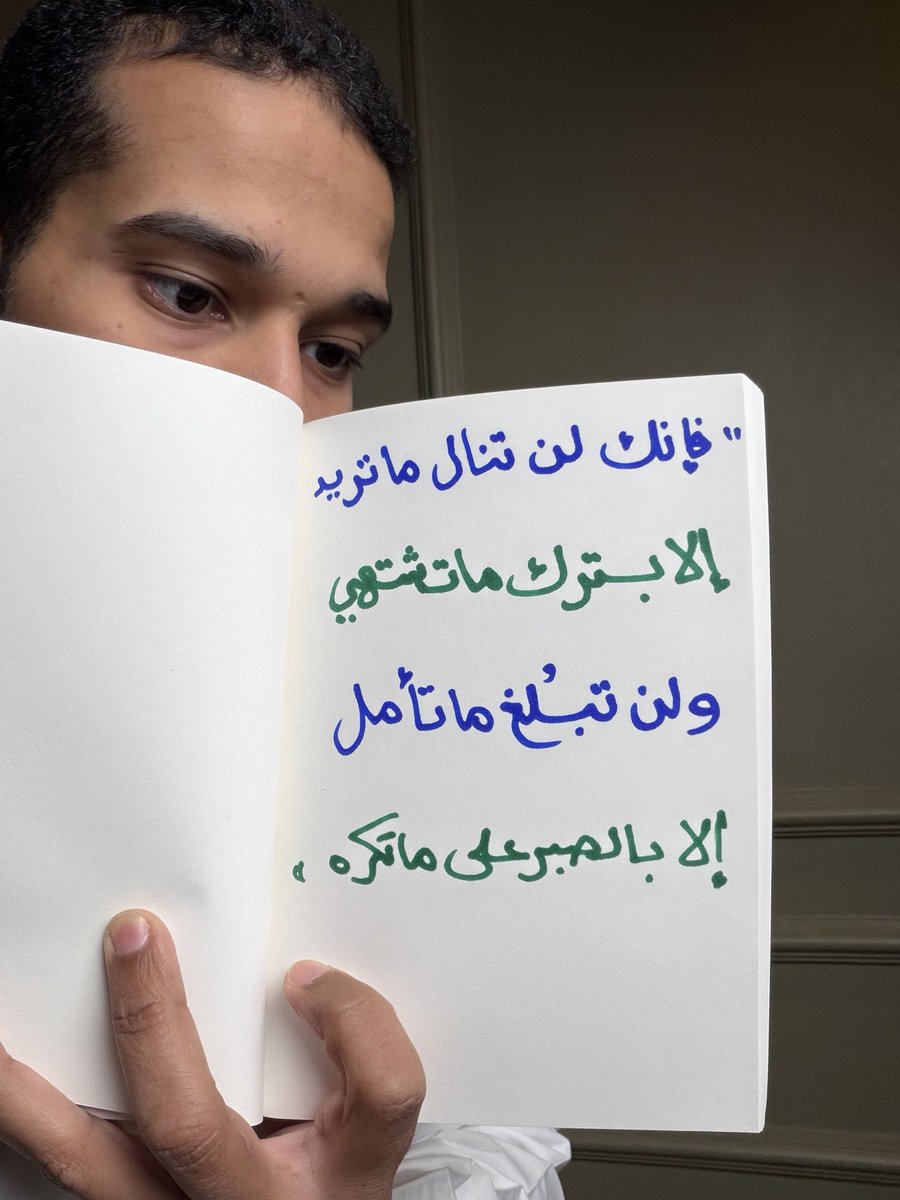 "فإنك لن تنال ما تريد
إلا بترك ما تشتهي
ولن تبُلغ ما تأمل
إلا بالصبر على ما تكره "